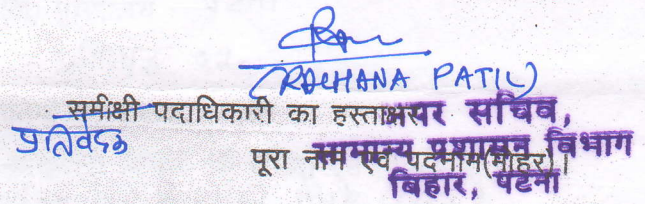 (RACHANA PATIL)
समीक्षी पदाधिकारी का हस्ताक्षर
प्रतिवेदक
अपर सचिव,
पूरा नाम एवं पदनाम(मोहर)।
सामान्य प्रशासन विभाग
बिहार, पटना